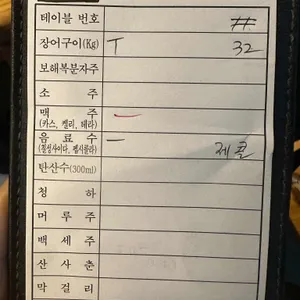 테이블 번호 #
장어구이(Kg) T 32
보해복분자주
소 주
맥 주 —
(카스, 켈리, 테라)
음 료 수 — 제콜
(칠성사이다, 펩시콜라)
탄산수(300ml)
청 하
머 루 주
백 세 주
산 사 춘
막 걸 리